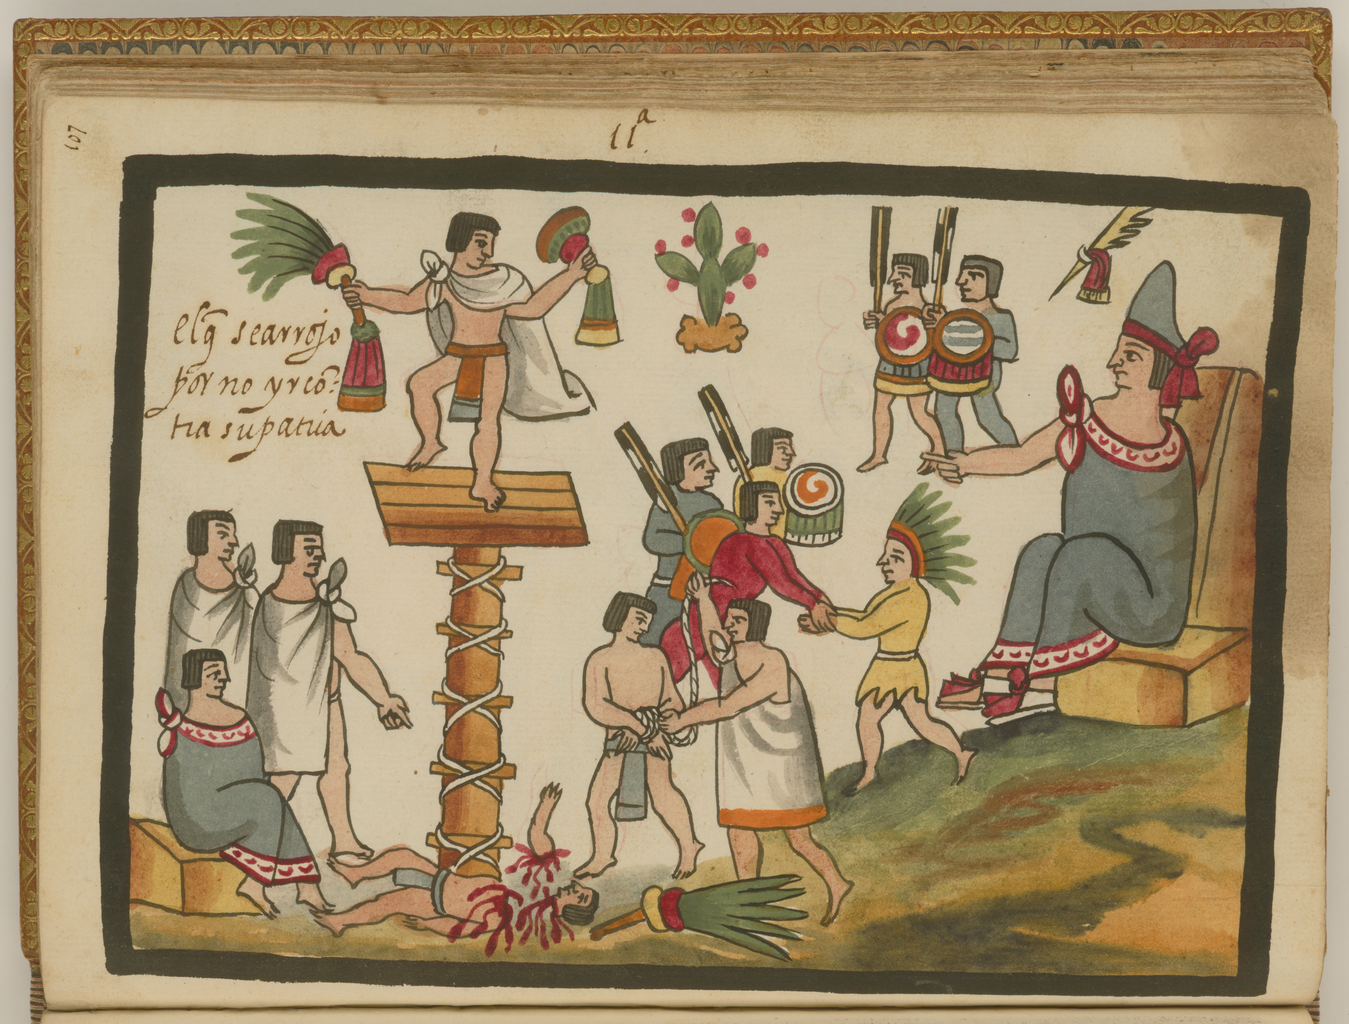 107
11ª
elq̃ searrojo
por no yr cõ=
tra su patria